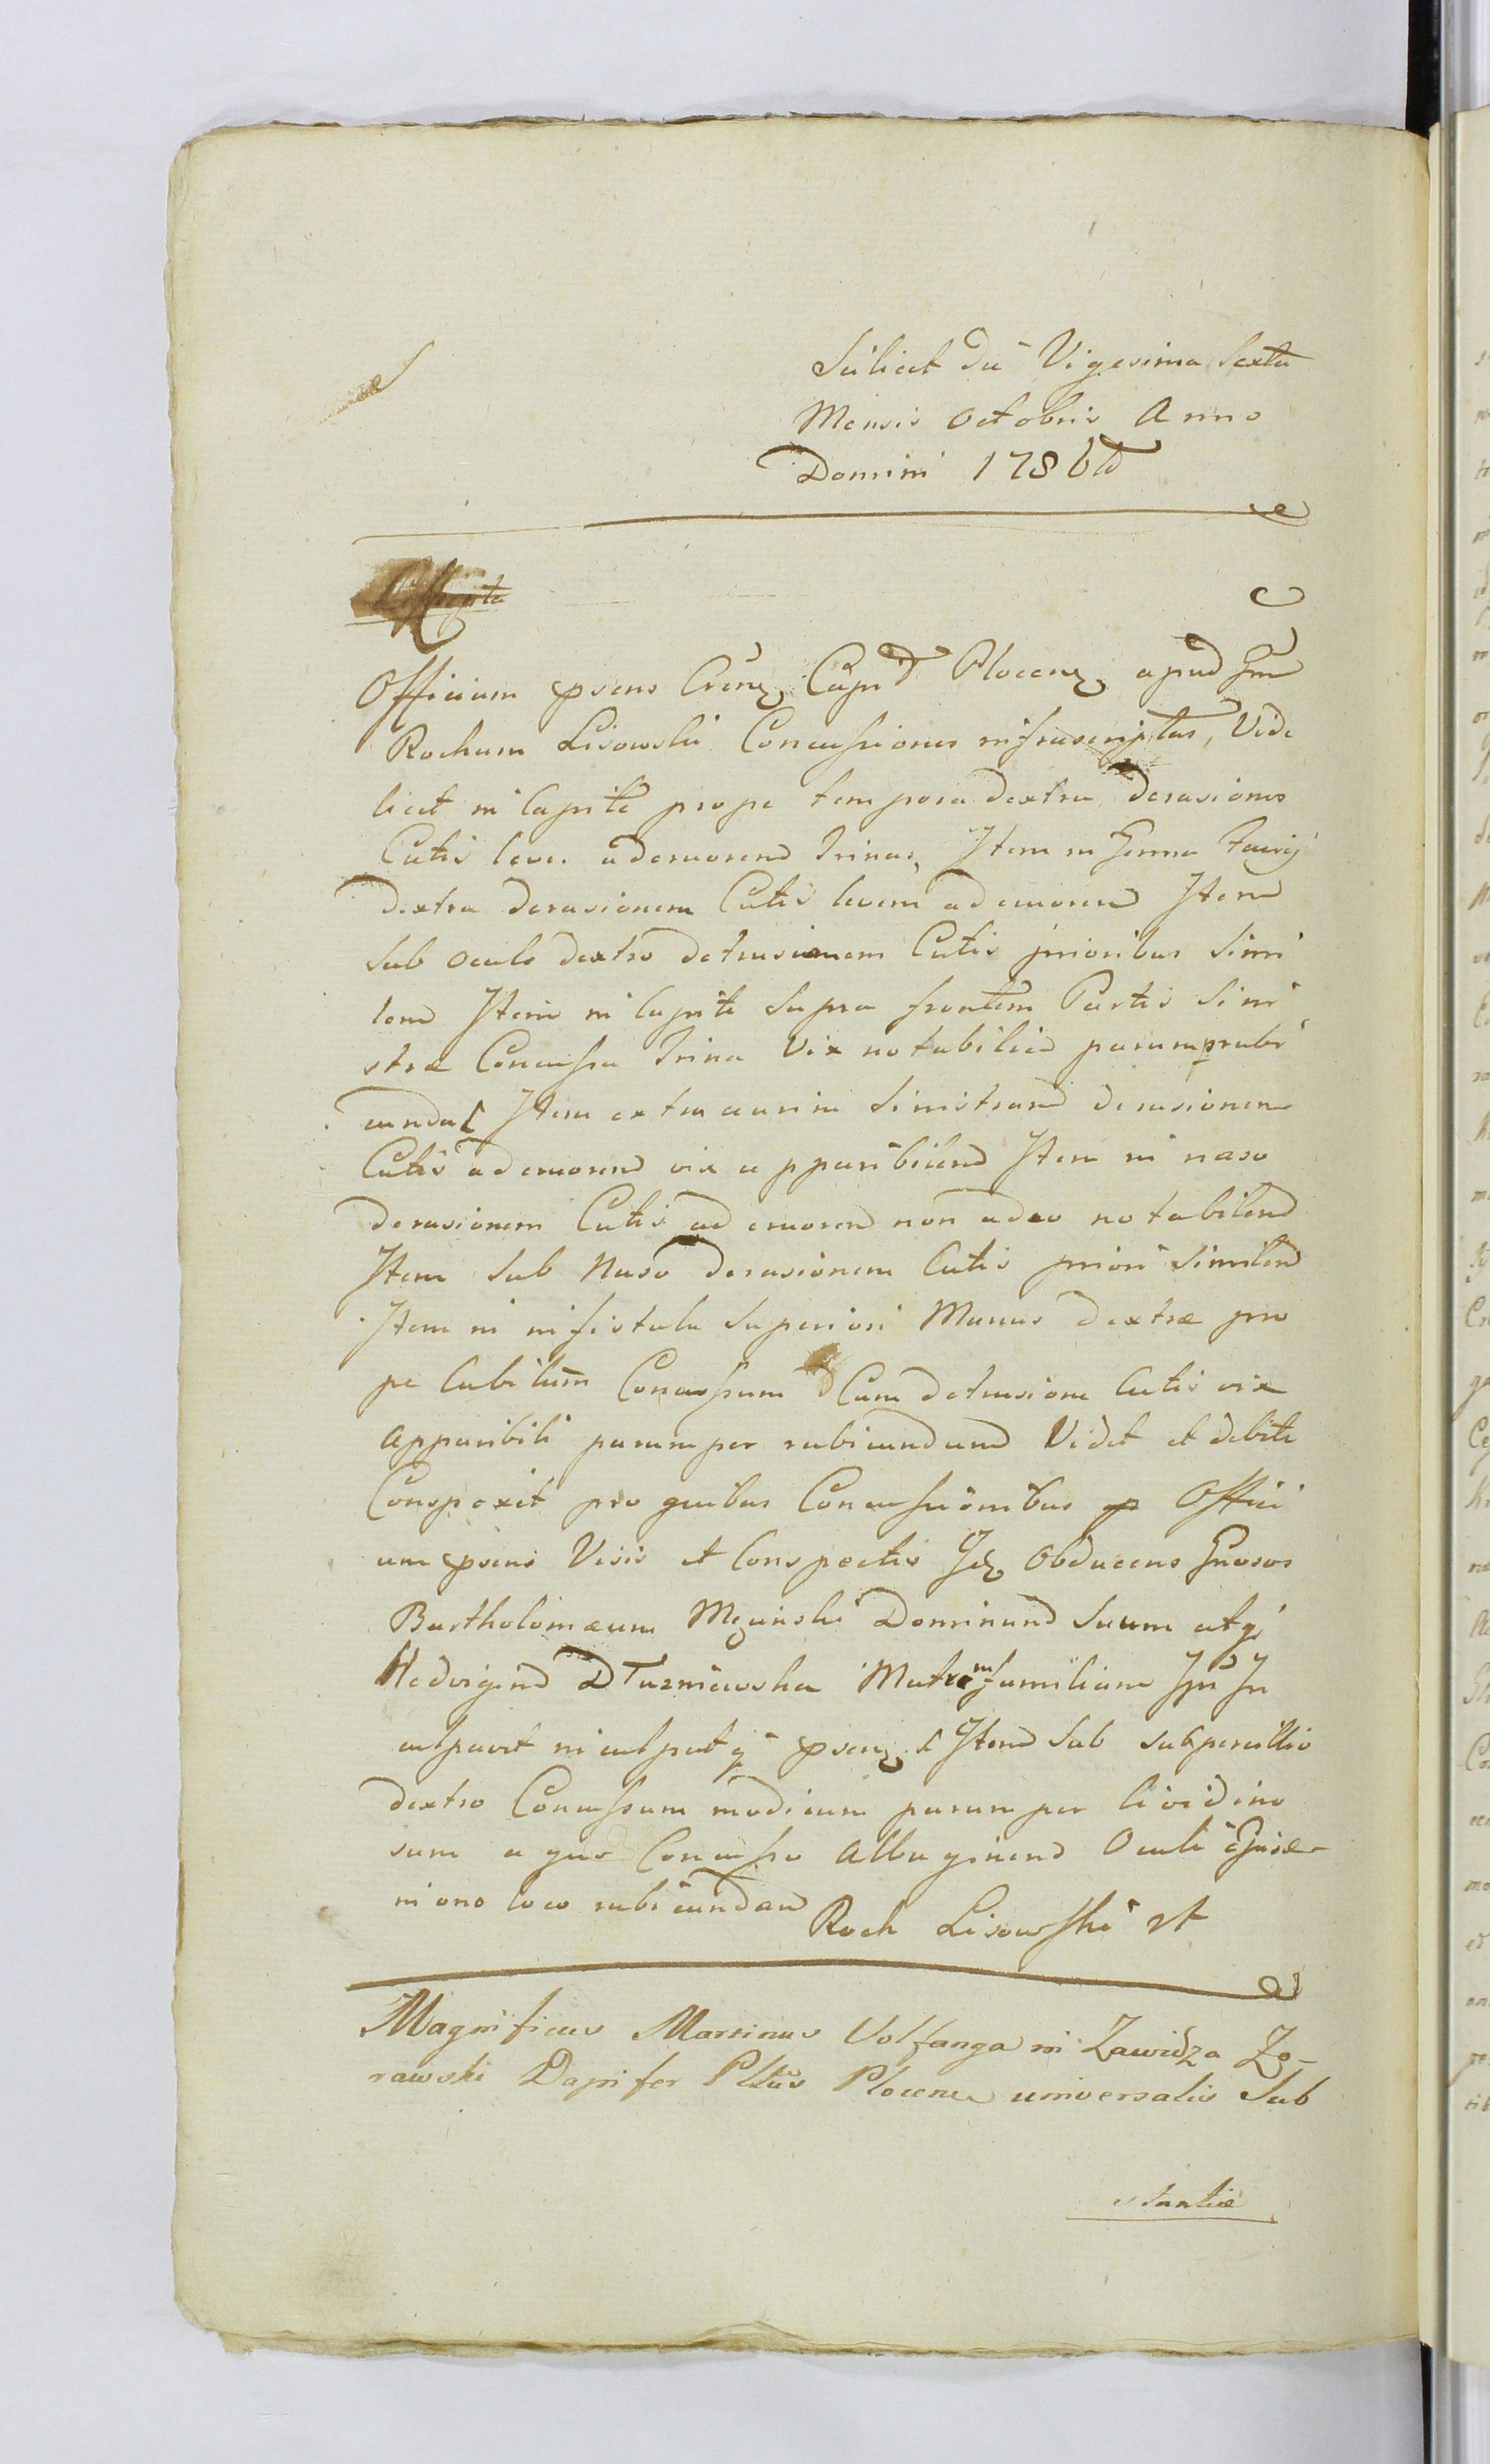 Scilicet die Vigesima Sexta
Mensis Octobris Anno
Domini 1786to
Officium psens Crense Capit Plocense apud Gnm
Rochum Lisowski Concussiones infrascriptas, Vide
licet in Capite prope tempora dextra derasiones
Cutis leves ad cruorem trinas, Item in Genua faciei
dextra derasionem Cutis levem ad cruorem Item
Sub oculo dextro detrusionem Cutis prioribus Simi
lem Item in Capite Supra frontem Partis Sini
stræ Concussa trina vix notabilia parumprubi
cunda Item extra aurim Sinistram derasionem
Cutis ad cruorem vix apparibilem Item in naso
derasionem Cutis ad cruorem non adeo notabilem
Item Sub Naso derasionem Cutis priori Similem
Item in in fistula Superiori Manus dextræ pro
pe Cubitum Concussum Cum detrusione Cutis vix
Apparibili parumper rubicundum Vidit et debite
Conspexit pro quibus Concussionibus p Offici
um psens Visis et Conspectis Idem Obducens Gnosos
Bartholomæum Mczinski Dominum Suum atq
Hedvigem D Turniewska Matremfamiliam
culpavit inculpatq psens Item Sub subpercillio
dextro Concussum modicum parumper lividino
sum a quo Concusso Albuginem Oculi
in ono loco rubicundam
Roch Lisowski
Magnificus Marcinus Volfanga in Zawidza Zo-
rawski Dapifer Pltus Plocensis universalis Sub
stantiæ